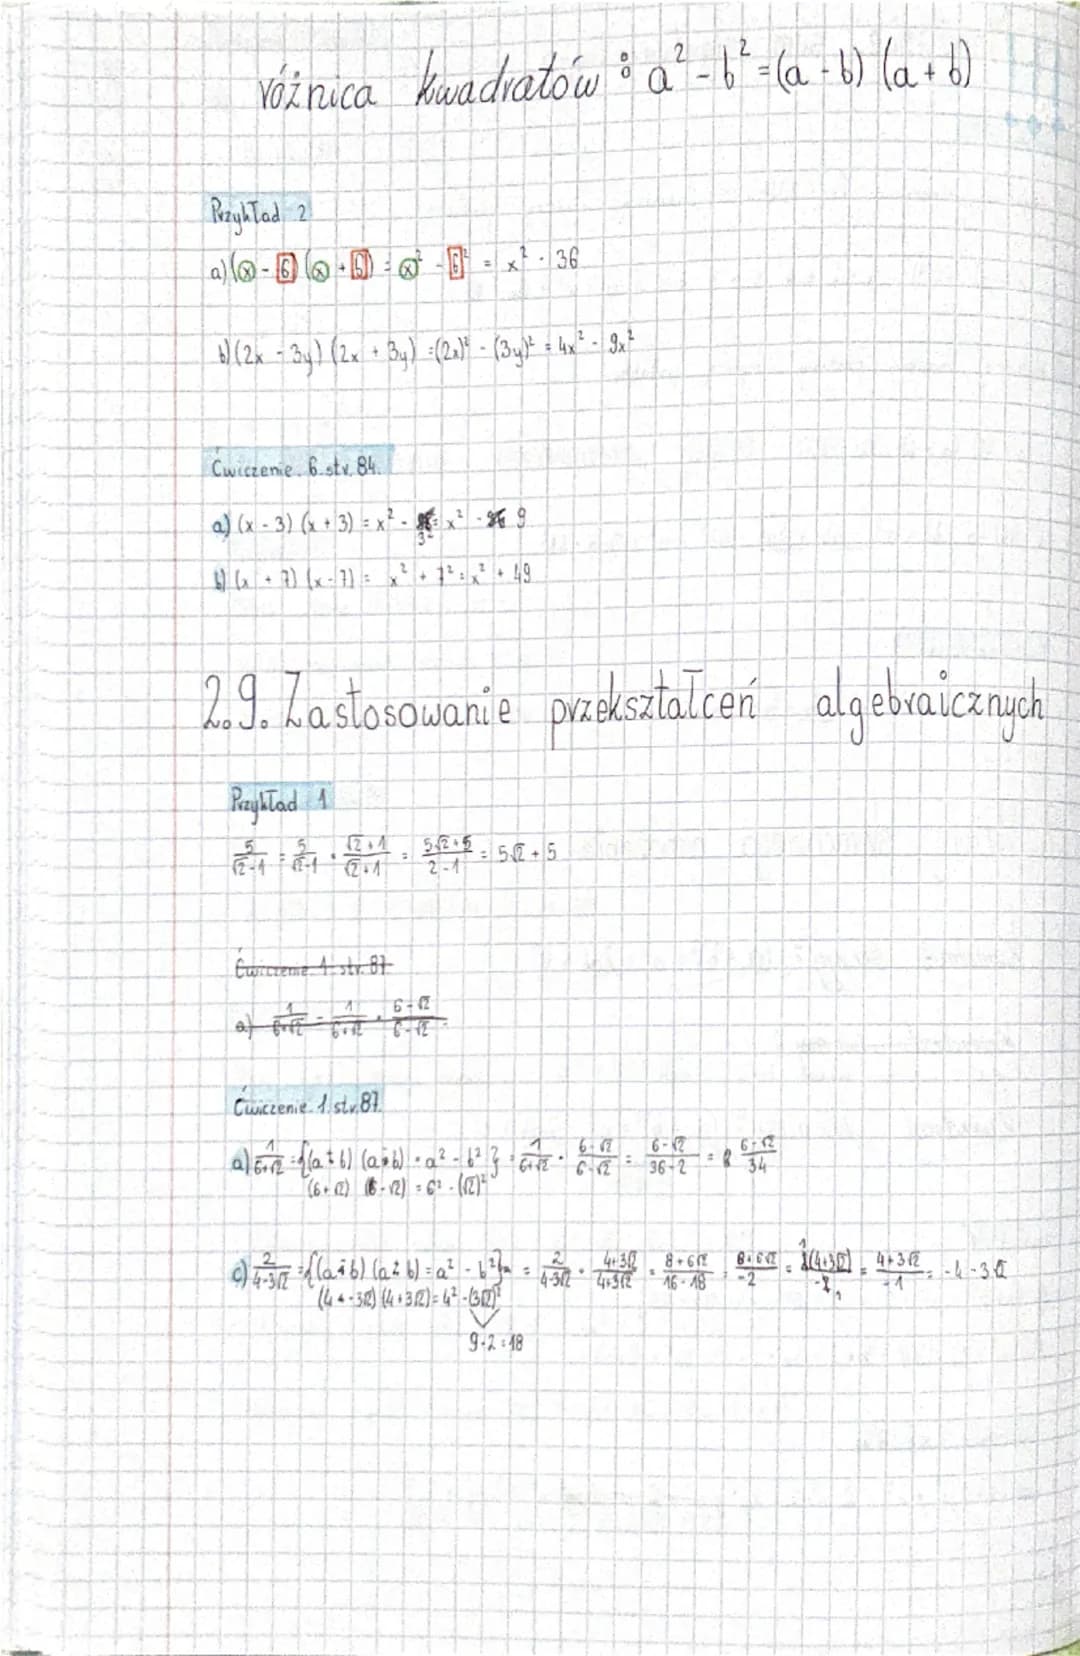 różnica kwadratów : a² - b² = (a - b) (a + b)
Przykład 2
a) (x - 6) (x + 6) = x² - 6² = x² - 36
b) (2x - 3y) (2x + 3y) = (2x)² - (3y)² = 4x² - 9x²
Ćwiczenie. 6. str. 84.
a) (x - 3) (x + 3) = x² - 3² = x² - 9
b) (x + 7) (x - 7) = x² + 7² = x² + 49
2.9. Zastosowanie przekształceń algebraicznych
Przykład 1
5/(√2-1) = 5/(√2-1) · (√2+1)/(√2+1) = (5√2+5)/(2-1) = 5√2 + 5
Ćwiczenie 1 str. 87
a) 1/(6+√2) = 1/(6+√2) · (6-√2)/(6-√2)
Ćwiczenie. 1. str. 87.
a) 1/(6+√2) = {(a + b) (a - b) = a² - b²} = 1/(6+√2) · (6-√2)/(6-√2) = (6-√2)/(36-2) = (6-√2)/34
(6+√2) (6-√2) = 6² - (√2)²
c) 2/(4-3√2) = {(a - b) (a + b) = a² - b²} = 2/(4-3√2) · (4+3√2)/(4+3√2) = (8+6√2)/(16-18) = (8+6√2)/-2 = 2(4+3√2)/-2 = (4+3√2)/-1 = -4-3√2
(4 - 3√2) (4+3√2) = 4² - (3√2)²
9·2=18